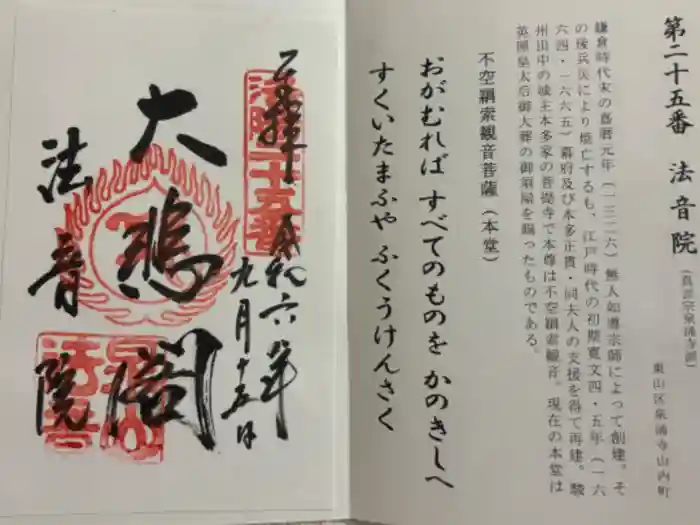 第二十五番 法音院
(真言宗泉涌寺派)
東山区泉涌寺山内町
鎌倉時代末の嘉暦元年(一三二六)無人如導宗師によって創建。そ
の後兵災により焼亡するも、江戸時代の初期寛文四・五年(一六
六四・一六六五)幕府及び本多正貫・同夫人の支援を得て再建。駿
州田中の城主本多家の菩提寺で本尊は不空羂索観音。現在の本堂は
英照皇太后御大葬の御須屋を賜ったものである。
不空羂索観音菩薩(本堂)
おがむれば すべてのものを かのきしへ
すくいたまふや ふくうけんさく
奉拝 令和六年
九月十五日
洛陽二十五番
大悲閣
法音院